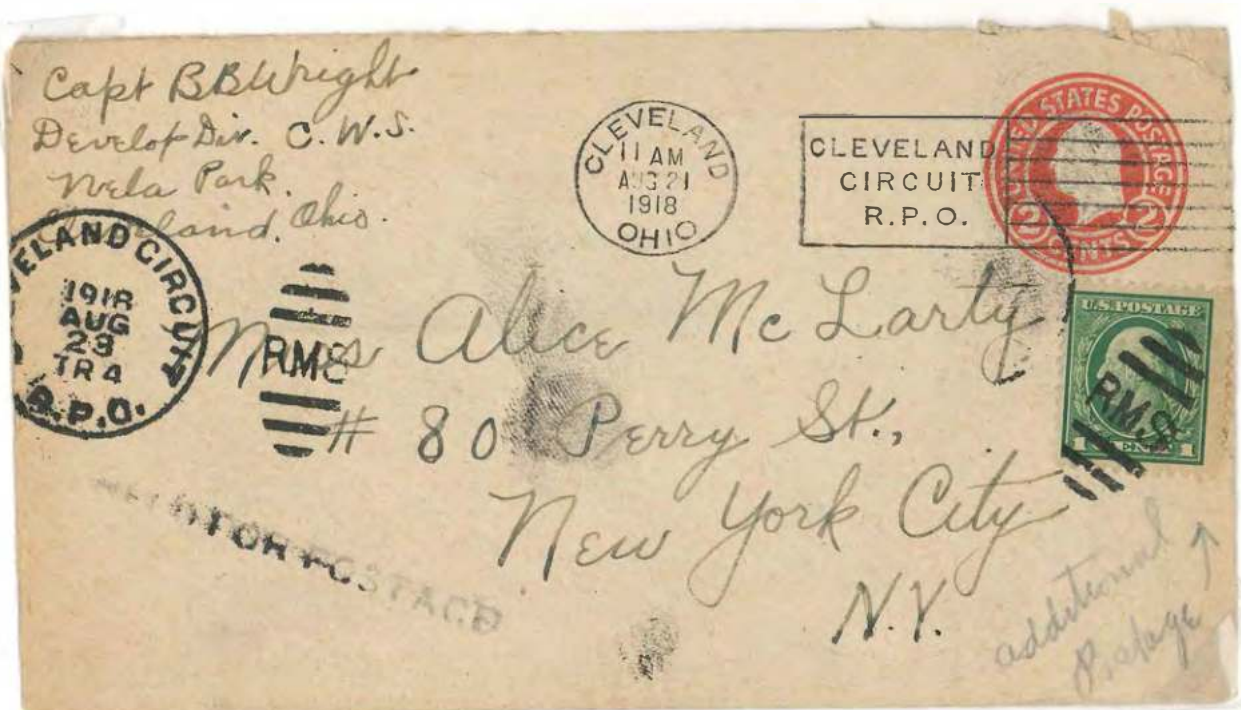 Capt BBWright
Develop Div. C.W.S.
Nela Park.
Cleveland, Ohio.
CLEVELAND
11 AM
AUG 21
1918
OHIO
CLEVELAND
CIRCUIT
R.P.O.
UNITED STATES POSTAGE
2 CENTS 2
CLEVELAND CIRCUIT
1918
AUG
23
TR 4
R.P.O.
RMS
Miss Alice McLarty
# 80 Perry St.,
New York City
N.Y.
U.S. POSTAGE
1 CENT 1
R.M.S.
HELD FOR POSTAGE
additional
Postage